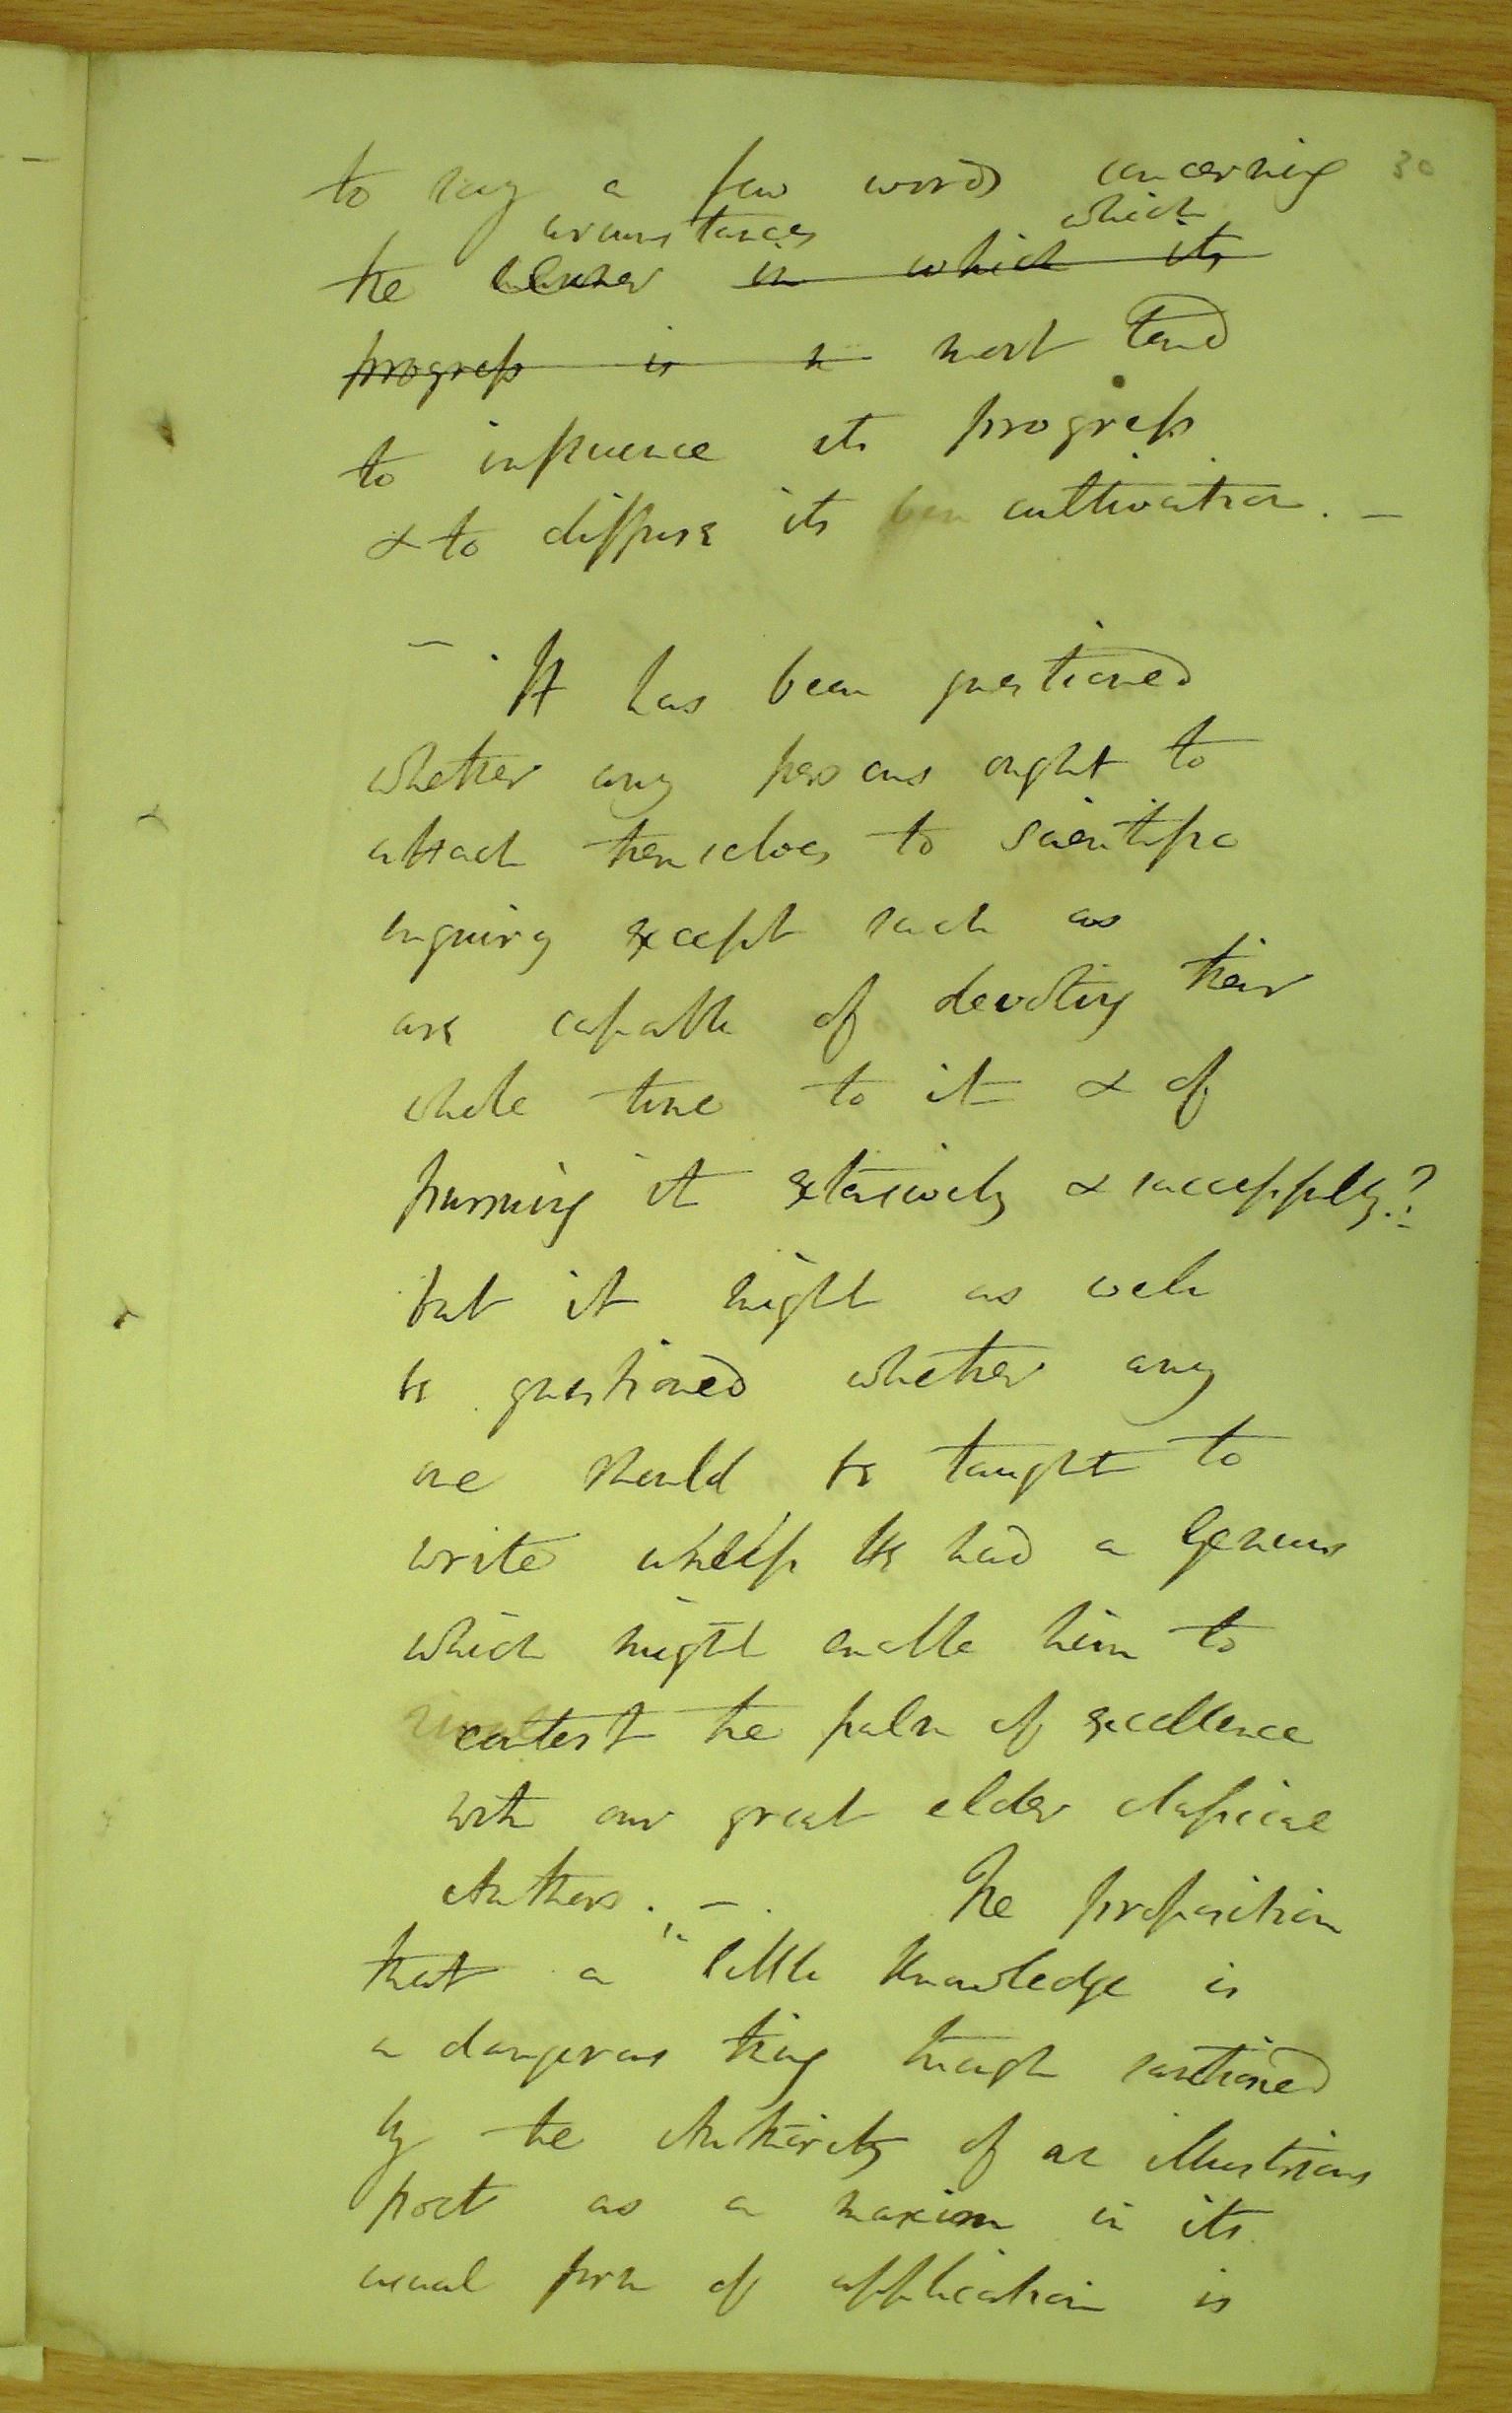 to say a few words concerning 30
circumstances which
the manner in which its
progress is most tend
to influence its progress
& to diffuse its cultivation. –
– It has been questioned
whether any persons ought to
attach themselves to scientific
enquiry except such as
are capable of devoting their
whole time to it & of
pursuing it extensively & successfully?
but it might as well
be questioned whether any
one should be taught to
write unless He had a Genius
which might enable him to
contest the palm of excellence
with our great elder classical
Authors. – The proposition
that a "little knowledge is
a dangerous thing though sanctioned
by the Authority of an illustrious
poet as a maxim in its
usual form of application is